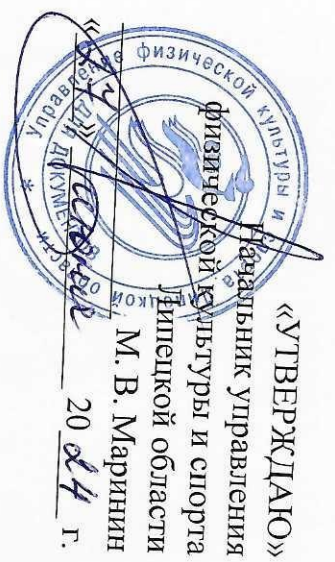 «УТВЕРЖДАЮ»
Начальник управления
физической культуры и спорта
Липецкой области
М. В. Маринин
2024 г.
Управление физической культуры и спорта Липецкой области
ДЛЯ ДОКУМЕНТОВ